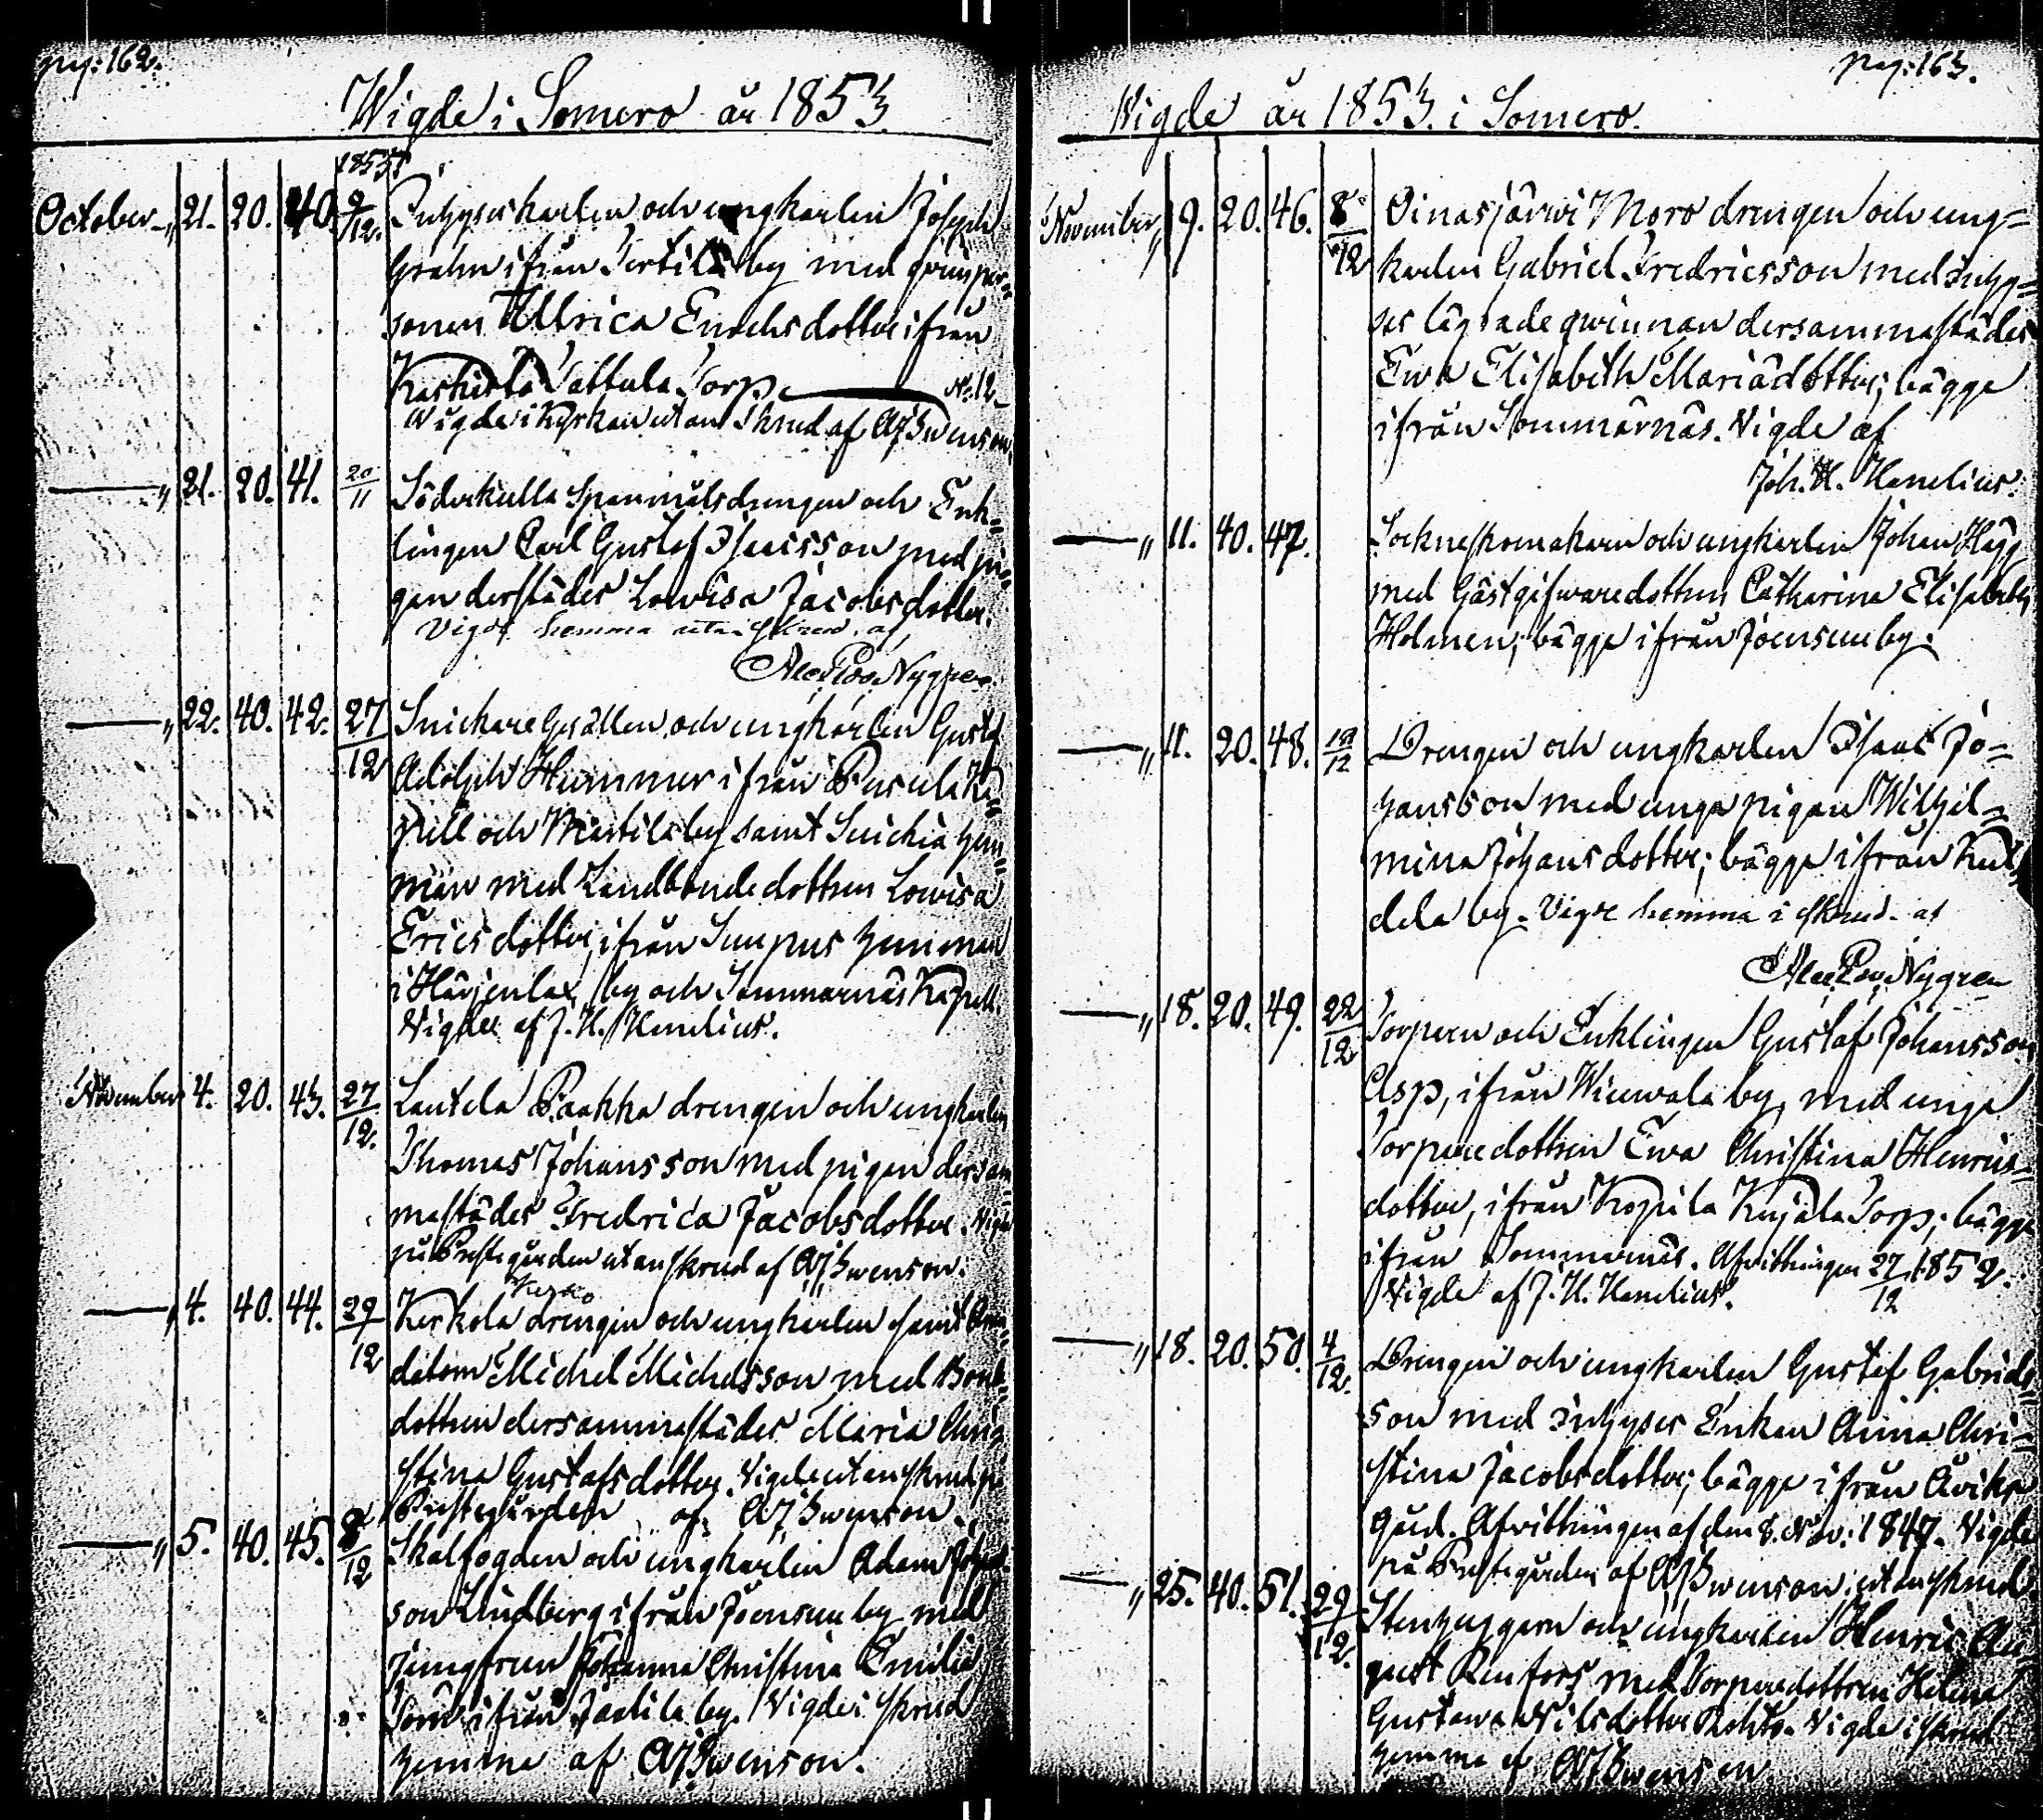 pag: 162.
Wigde i Somero år 1853.
1853
October " 21. 20. 40. 9/12. Inhyseskarlen och ungkarlen Joseph
Grahn ifrån Pertilä by med qvinsper=
sonen Ullrica Enochsdotter ifrån
Kaskisto Tattula Torp. No 12.
Wigde i Kyrkan utan skrud af Swenson
" 21. 20. 41. 20/11 Söderkulla Spanmålsdrengen och Enk=
lingen Carl Gustaf Isacsson med pi=
gan derstädes Lovisa Jacobsdotter.
Vigde hemma utan skrud af
Nygren.
" 22. 40. 42. 27/12 Snickare Gesällen och ungkarlen Gustaf
Adolph Hummer ifrån Pusula Ka=
pell och by samt hem=
man med Landbondedottren Lovisa
Ericsdotter, ifrån hemman
i Härjenlax by och Sommarnäs Kapell.
Vigde af J. H. Hanelius.
November 4. 20. 43. 27/12. Lautela Paakka drengen och ungkarlen
Thomas Johansson med pigan dersam=
mastädes Fredrica Jacobsdotter. Vigde
på Prestegården utan skrud af Swenson.
" 4. 40. 44. 29/12 Kerkola drengen och ungkarlen samt
Michel Michelsson med Bond=
dottren dersammastädes Maria Chri=
stina Gustafsdotter. Vigde utan skrud på
Prestegården af Swenson.
" 5. 40. 45. 8/12 Skalfogden och ungkarlen Adam Johans=
son Lindberg ifrån Joensuu by med
jungfrun Johanna Christina Emilia
ifrån by. Vigde i skrud
hemma af Swenson.
pag: 163.
Wigde år 1853. i Somero.
November " 9. 20. 46. 8/12 Oinasjärwi Moro drengen och ung=
karlen Gabriel Fredricsson med inhy=
ses lägrade qwinnan dersammastädes
Ewa Elisabeth Mariædotter; bägge
ifrån Sommarnäs. Vigde af
Joh. H. Hanelius.
" 11. 40. 47. Sockneskomakarn och ungkarlen Johan Hägg
med Gästgifwaredottren Catharina Elisabeth
Holmen; bägge ifrån Joensuu by.
" 11. 20. 48. 19/12 Drengen och ungkarlen Isaac Jo=
hansson med unga pigan Wilhel=
mina Johansdotter; bägge ifrån
dela by. Vigde hemma i skrud af
Nygren
" 18. 20. 49. 22/12 Torparn och Enklingen Gustaf Johansson
Asp, ifrån Wiuwala by, med unga
Torparedottren Ewa Christina Henrics=
dotter, ifrån Kopila Kujala Torp; bägge
ifrån Sommarnäs. Afvittringen 27/12 1852.
Vigde af J. H. Hanelius.
" 18. 20. 50. 4/12. Drengen och ungkarlen Gustaf Gabriels=
son med inhyses Enkan Anna Chri=
stina Jacobsdotter; bägge ifrån Åvika
Gård. Afvittringen af den 8. Nov: 1847. Vigde
på Prestegården af Swenson utan skrud
" 25. 40. 51. 29/12. Stenhuggarn och ungkarlen Henric Au=
gust Renfors med Torparedottren Helena
Gustawa Nilsdotter Vigde i skrud
hemma af Swenson.